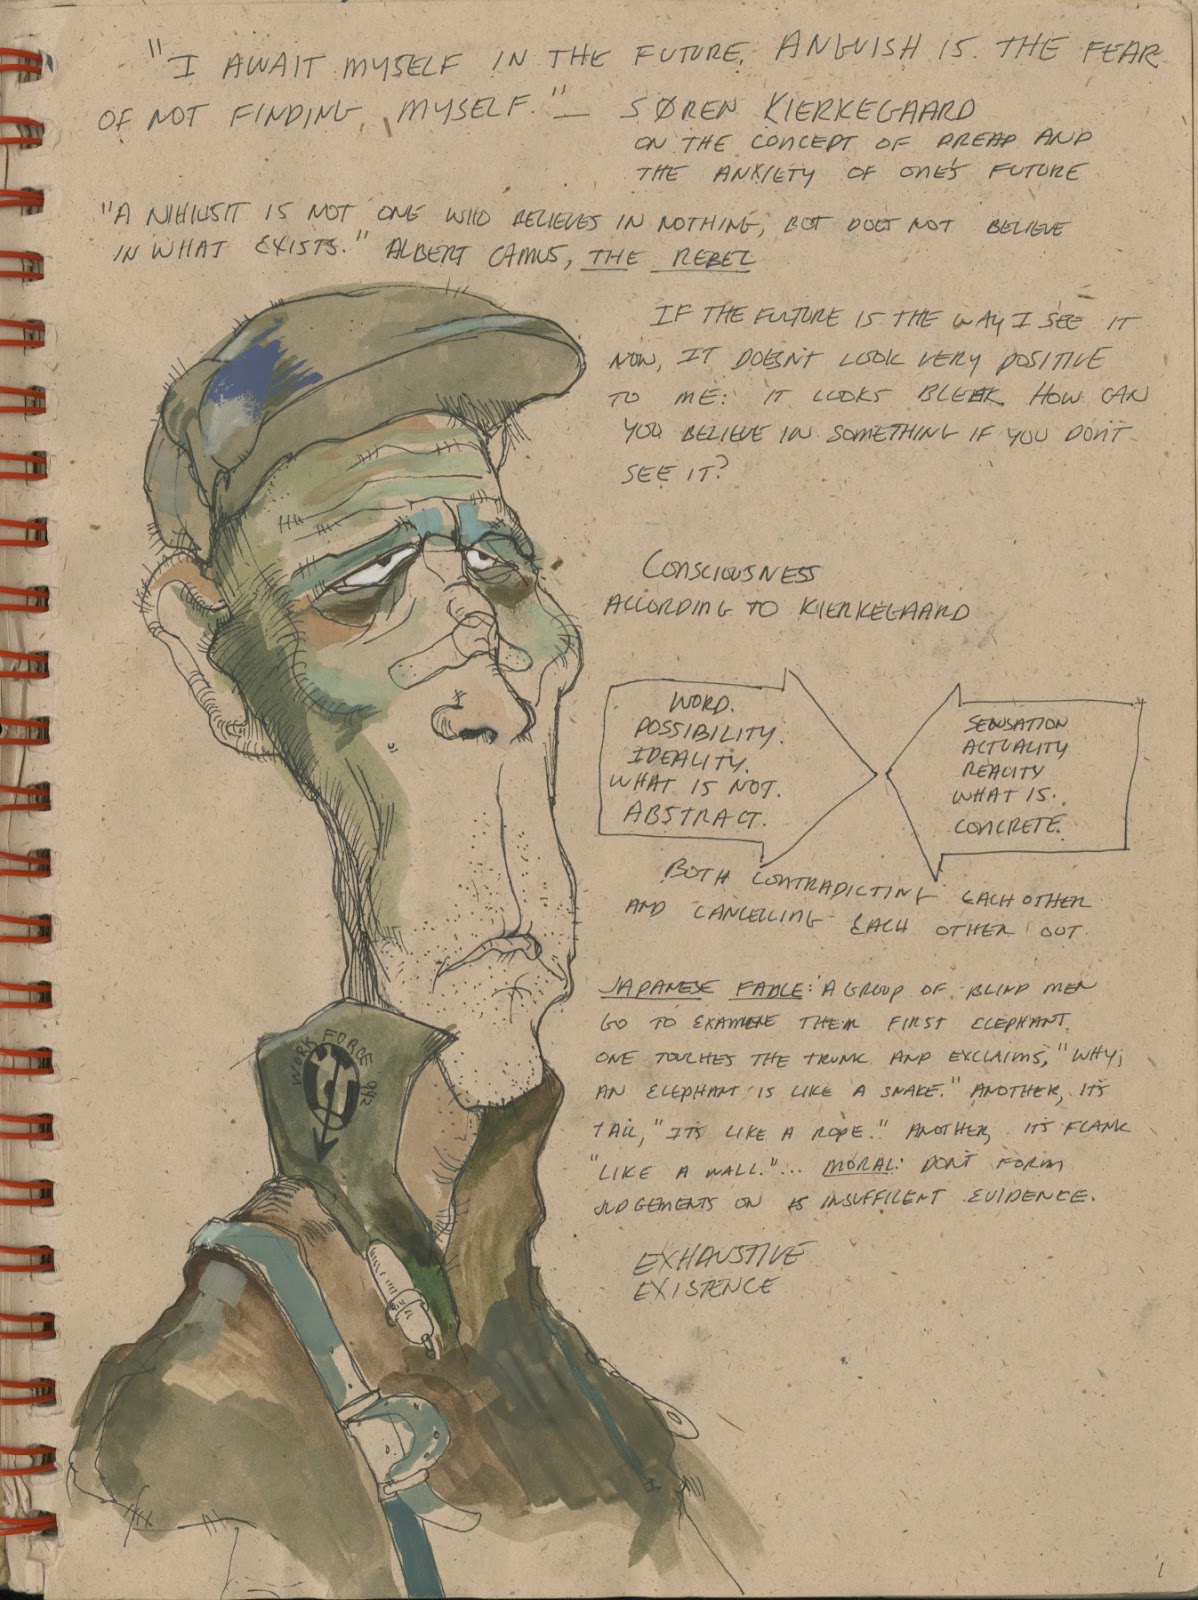 "I AWAIT MYSELF IN THE FUTURE. ANGUISH IS THE FEAR
OF NOT FINDING MYSELF." — SØREN KIERKEGAARD
ON THE CONCEPT OF DREAD AND
THE ANXIETY OF ONE'S FUTURE
"A NIHILIST IS NOT ONE WHO BELIEVES IN NOTHING, BUT DOES NOT BELIEVE
IN WHAT EXISTS." ALBERT CAMUS, THE REBEL
IF THE FUTURE IS THE WAY I SEE IT
NOW, IT DOESN'T LOOK VERY POSITIVE
TO ME: IT LOOKS BLEAK. HOW CAN
YOU BELIEVE IN SOMETHING IF YOU DON'T
SEE IT?
CONSCIOUSNESS
ACCORDING TO KIERKEGAARD
WORD.
POSSIBILITY.
IDEALITY.
WHAT IS NOT.
ABSTRACT.
SENSATION
ACTUALITY
REALITY
WHAT IS.
CONCRETE.
BOTH CONTRADICTING EACH OTHER
AND CANCELLING EACH OTHER OUT.
JAPANESE FABLE: A GROUP OF BLIND MEN
GO TO EXAMINE THEIR FIRST ELEPHANT.
ONE TOUCHES THE TRUNK AND EXCLAIMS, "WHY,
AN ELEPHANT IS LIKE A SNAKE." ANOTHER, ITS
TAIL, "IT'S LIKE A ROPE." ANOTHER, ITS FLANK
"LIKE A WALL."... MORAL: DON'T FORM
JUDGEMENTS ON INSUFFICENT EVIDENCE.
EXHAUSTIVE
EXISTENCE
WORK FORCE 992
1